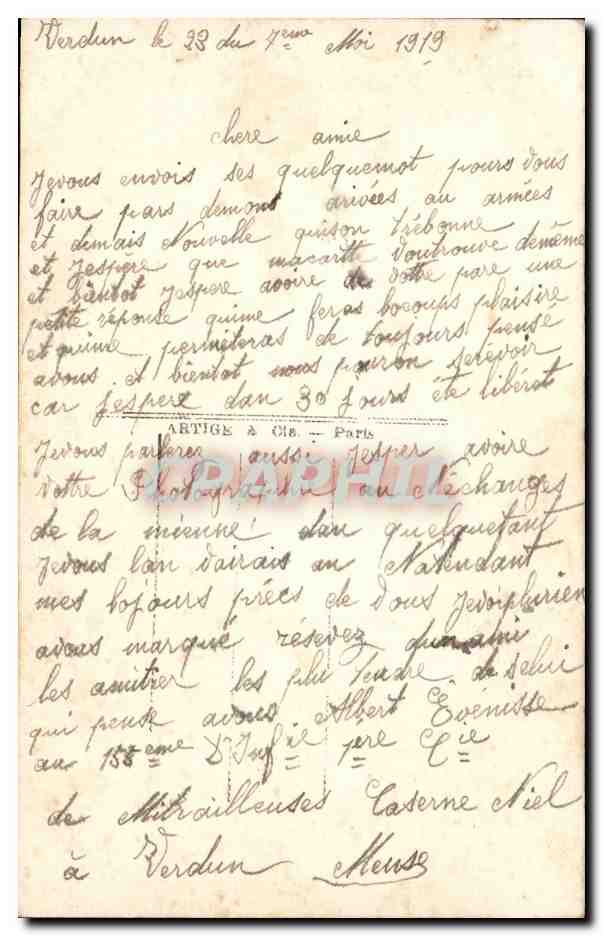 Verdun le 23 du 7eme Moi 1919
chere amie
Jevous envois ses quelquemot pours Vous
faire pars demons arivées au armées
et demais Nouvelle quison trèbonne
et Jespère que macartte Voutrouve demême
et bientot Jespere avoire de Vottre pare une
petite réponse quime feras bocoups plaisire
et quime permèteras de toujours pensé
avous et bientot nous pouron serevoir
car Jespere dan 30 jours été libérét
ARTIGE & Cie. — Paris
Jevous parlerez aussi Jesper avoire
Vottre Photographie au Néchanges
de la mienne dan quelquetant
Jevous lan Vairais an Natendant
mes bojours près de Vous Jevoiplurien
avous marqué résevez dun ami
les amitier les plu Tendre de selui
qui pense avous Albert Evénisse
au 158eme D'Infie 1ere Cie
de Mitrailleuses Caserne Niel
à Verdun Meuse
DELCAMPHIL